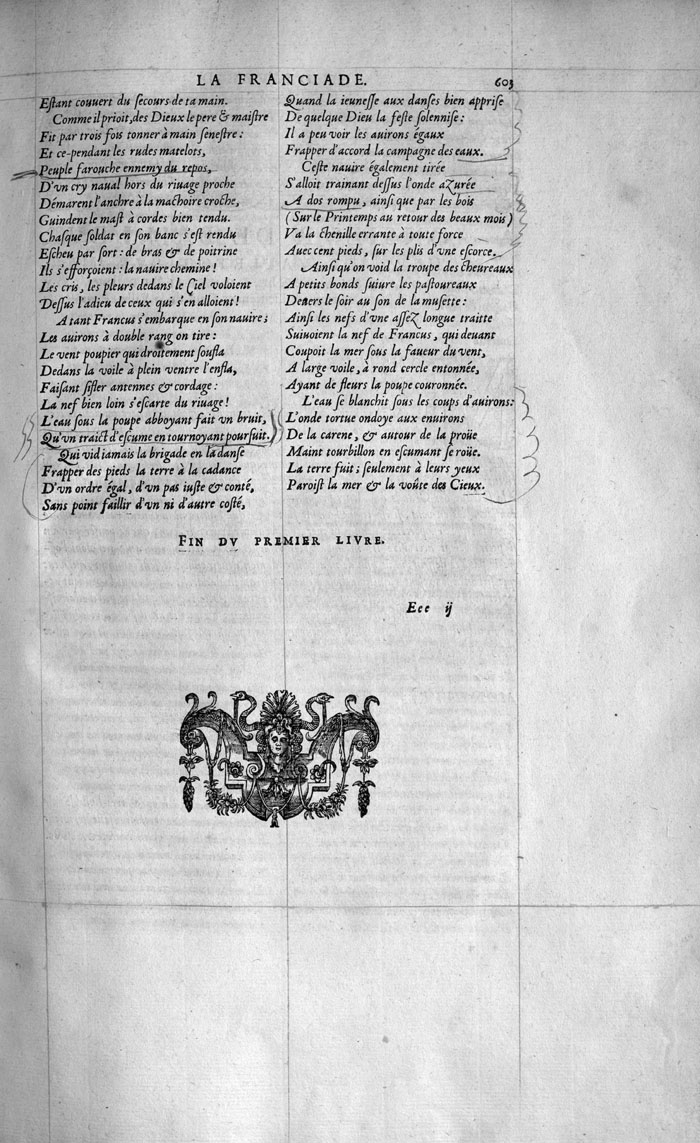 LA FRANCIADE. 603
Eſtant couuert du ſecours de ta main.
Comme il prioit, des Dieux le pere & maiſtre
Fit par trois fois tonner à main ſeneſtre:
Et ce-pendant les rudes matelots,
Peuple farouche ennemy du repos,
D'vn cry naual hors du riuage proche
Démarent l'anchre à la machoire croche,
Guindent le maſt à cordes bien tendu.
Chaſque ſoldat en ſon banc s'eſt rendu
Eſcheu par ſort: de bras & de poitrine
Ils s'efforçoient: la nauire chemine!
Les cris, les pleurs dedans le Ciel voloient
Deſſus l'adieu de ceux qui s'en alloient!
A tant Francus s'embarque en ſon nauire;
Les auirons à double rang on tire:
Le vent poupier qui droitement ſoufla
Dedans la voile à plein ventre l'enfla,
Faiſant ſifler antennes & cordage:
La nef bien loin s'eſcarte du riuage!
L'eau ſous la poupe abboyant fait vn bruit,
Qu'vn traict d'eſcume en tournoyant pourſuit.
Qui vid iamais la brigade en la danſe
Frapper des pieds la terre à la cadance
D'vn ordre égal, d'vn pas iuſte & conté,
Sans point faillir d'vn ni d'autre coſté,
Quand la ieuneſſe aux danſes bien appriſe
De quelque Dieu la feſte ſolenniſe:
Il a peu voir les auirons égaux
Frapper d'accord la campagne des eaux.
Ceſte nauire également tirée
S'alloit trainant deſſus l'onde azurée
A dos rompu, ainſi que par les bois
(Sur le Printemps au retour des beaux mois)
Va la chenille errante à toute force
Auec cent pieds, ſur les plis d'vne eſcorce.
Ainſi qu'on void la troupe des cheureaux
A petits bonds ſuiure les paſtoureaux
Deuers le ſoir au ſon de la muſette:
Ainſi les nefs d'vne aſſez longue traitte
Suiuoient la nef de Francus, qui deuant
Coupoit la mer ſous la faueur du vent,
A large voile, à rond cercle entonnée,
Ayant de fleurs la poupe couronnée.
L'eau ſe blanchit ſous les coups d'auirons:
L'onde tortue ondoye aux enuirons
De la carene, & autour de la proüe
Maint tourbillon en eſcumant ſe roüe.
La terre fuit; ſeulement à leurs yeux
Paroiſt la mer & la voûte des Cieux.
FIN DV PREMIER LIVRE.
Eee ij